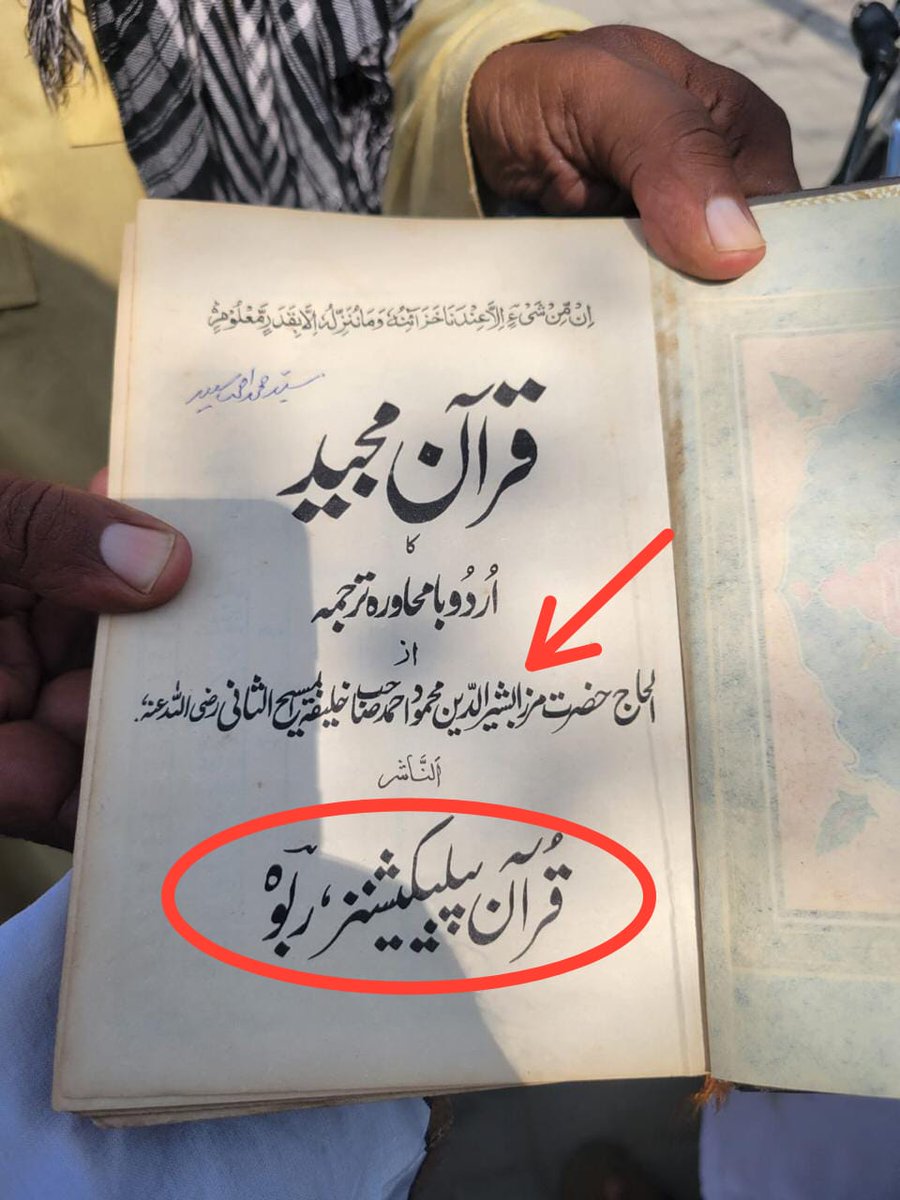 اِنْ مِّنْ شَیْءٍ اِلَّا عِنْدَنَا خَزَآئِنُهٗ وَمَا نُنَزِّلُهٗ اِلَّا بِقَدَرٍ مَّعْلُوْمٍ
سید احمد سعید
قرآن مجید
کا
اُردُو بامحاورہ ترجمہ
از
الحاج حضرت مرزا بشیر الدّین محمود احمد صاحب خلیفۃ المسیح الثانی رضی اللہ عنہ
اَلنَّاشر
قُرآن پبلیکیشنز، ربوَہ